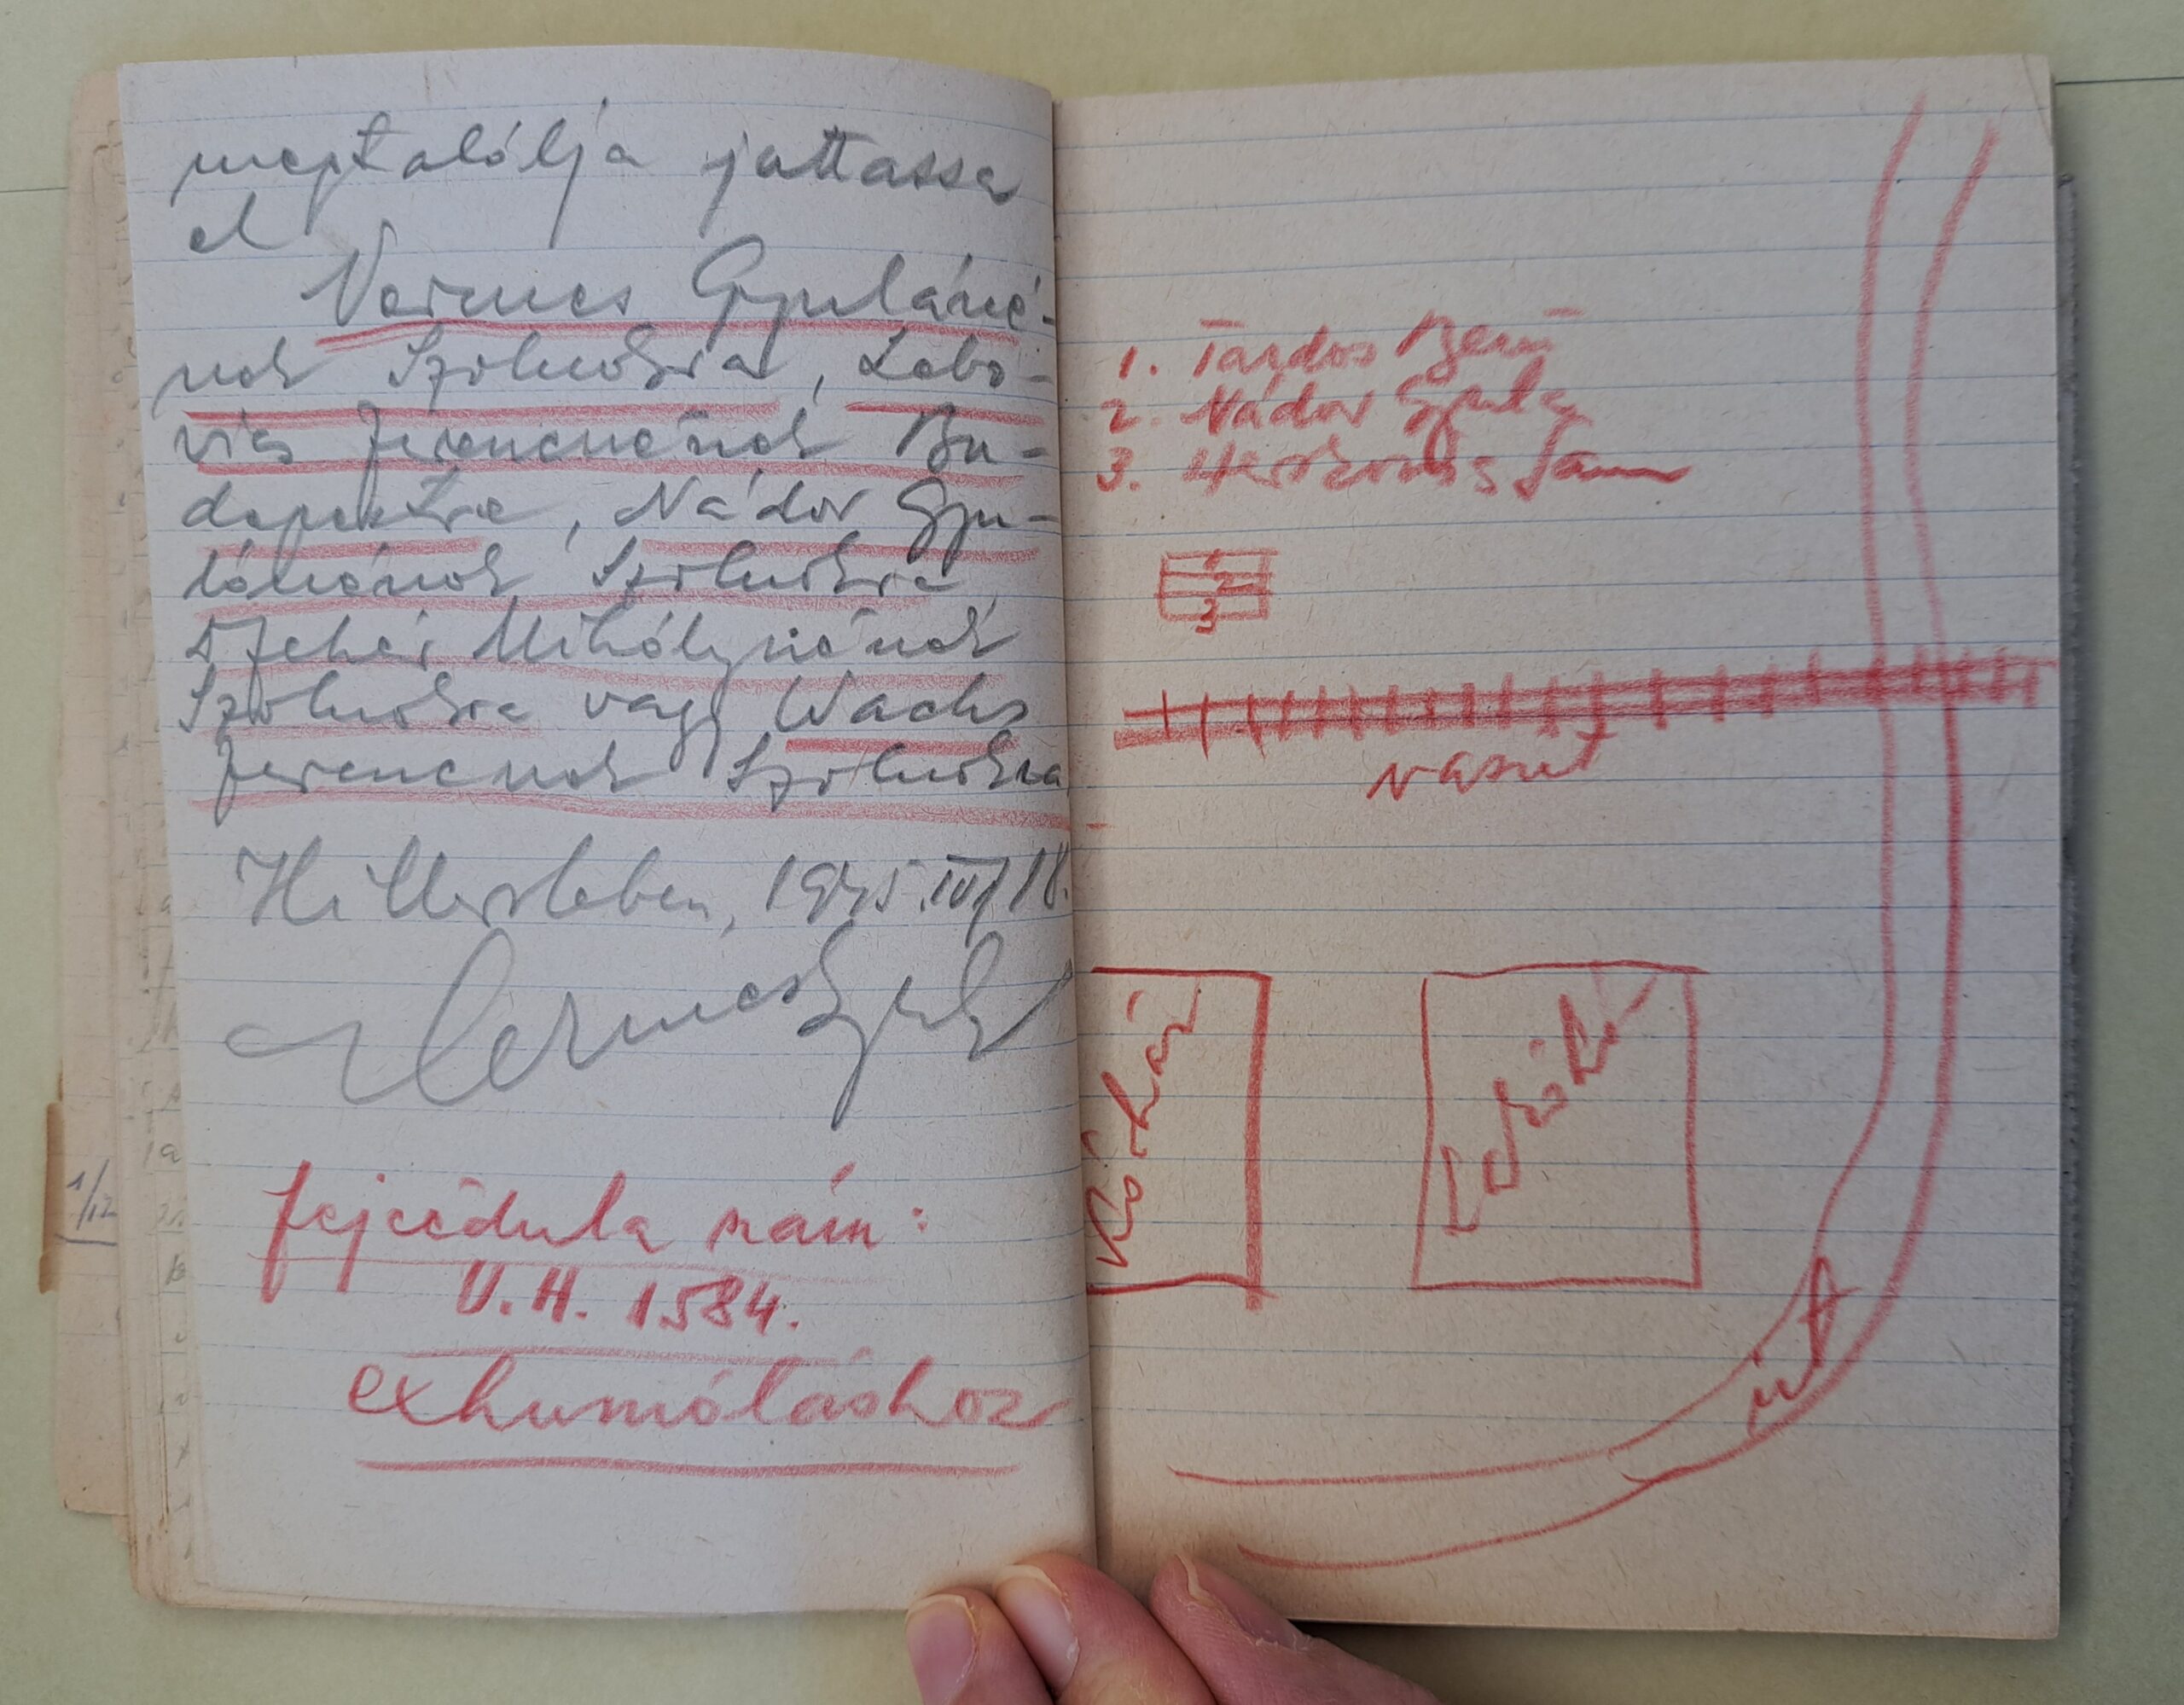 megtalálja juttassa
el
Vermes Gyuláné-
nak Szolnokra, Lebo-
vics Ferencnének Bu-
dapestre, Nádor Gyu-
lánénak Szolnokra,
Fehér Mihálynénak
Szolnokra vagy Wachs
Ferencnek Szolnokra
Hillersleben, 1945.IV/18.
Vermes Gyula
fejcédula szám:
U.H. 1584.
exhumáláshoz
1. Tardos Jenő
2. Nádor Gyula
3. Herskovits Sam
1
2
3
vasút
Kórház
Lakóház
út
1/12